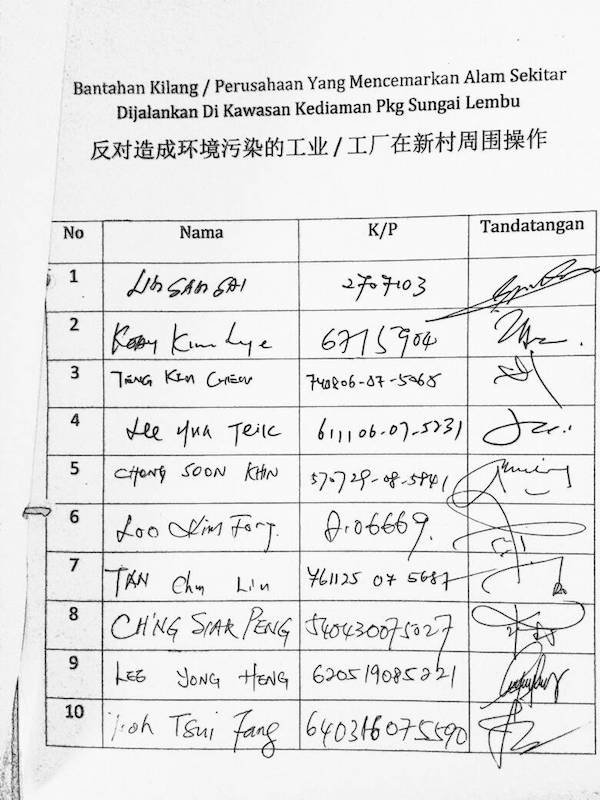 Bantahan Kilang / Perusahaan Yang Mencemarkan Alam Sekitar
Dijalankan Di Kawasan Kediaman Pkg Sungai Lembu
反对造成环境污染的工业 / 工厂在新村周围操作
No Nama K/P Tandatangan
1 LIM SAM SAI 2707103
2 Kim Lye 6715904
3 TENG KIM CHEW 740806-07-5068
4 Lee Yua Teik 611106-07-5231
5 CHONG SOON KHIN 570729-08-5941
6 Loo Kim Fong.
7 TAN Chu Lin 761125 07 5687
8 CHING SIAK PENG 540430075027
9 LEE YONG HENG 620519085221
10 Tsui Fang 640316075590